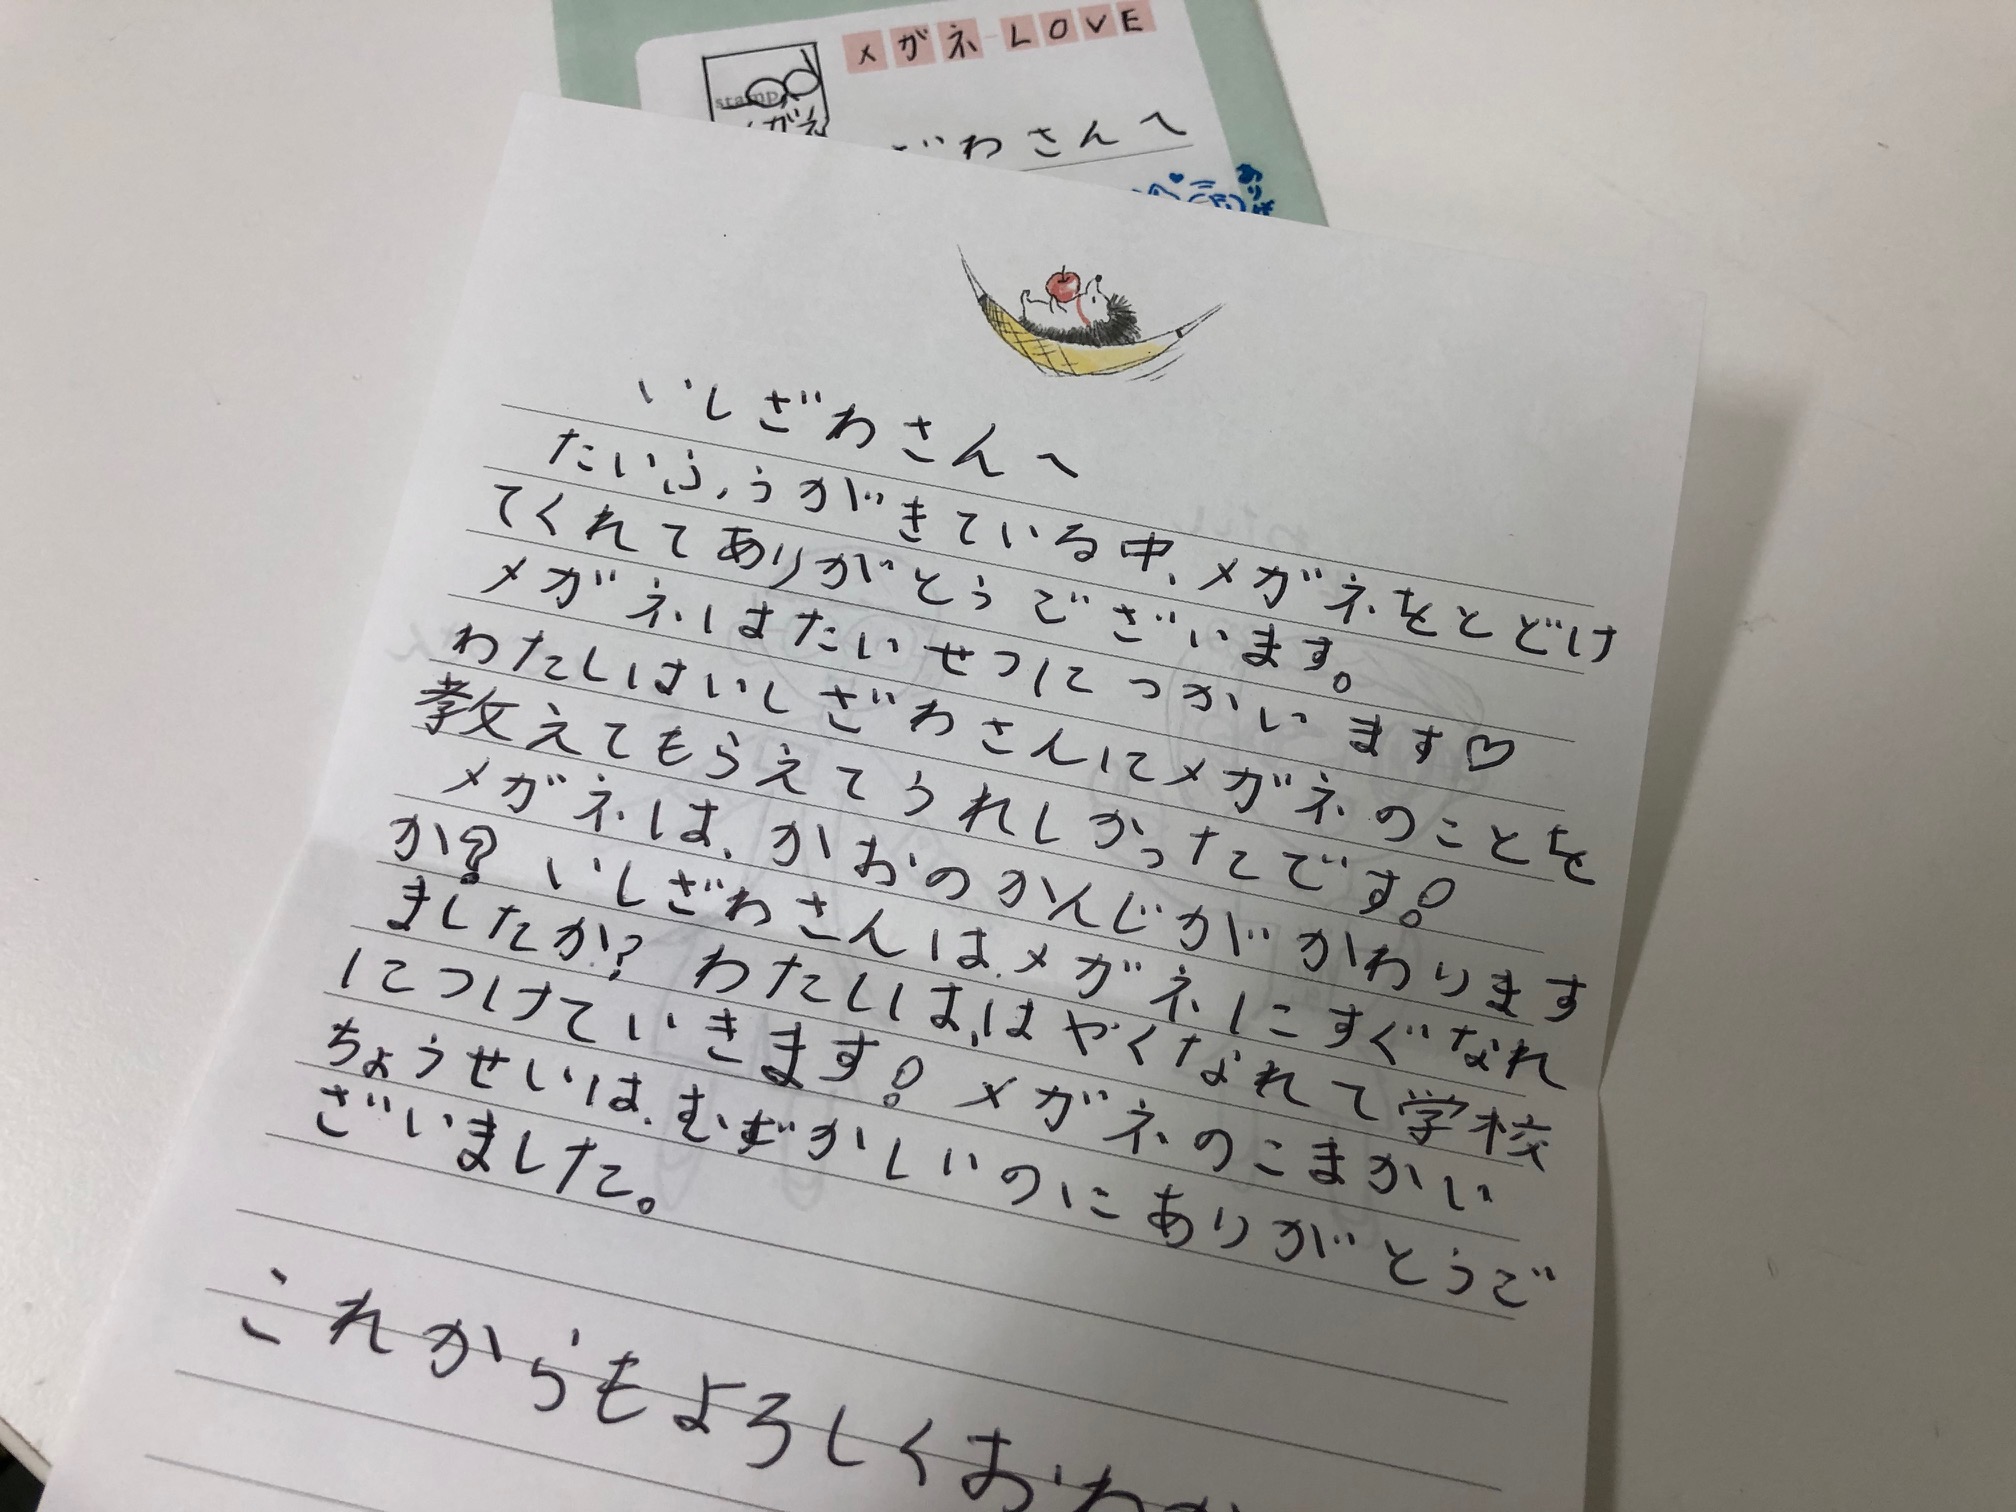 メガネ LOVE
stamp
ざわさんへ
いしざわさんへ
たいふうがきている中、メガネをとどけ
てくれてありがとうございます。
メガネはたいせつにつかいます♡
わたしはいしざわさんにメガネのことを
教えてもらえてうれしかったです!
メガネは、かおのかんじがかわります
か? いしざわさんは、メガネにすぐなれ
ましたか? わたしは、はやくなれて学校
につけていきます! メガネのこまかい
ちょうせいは、むずかしいのにありがとうご
ざいました。
これからもよろしくおねが